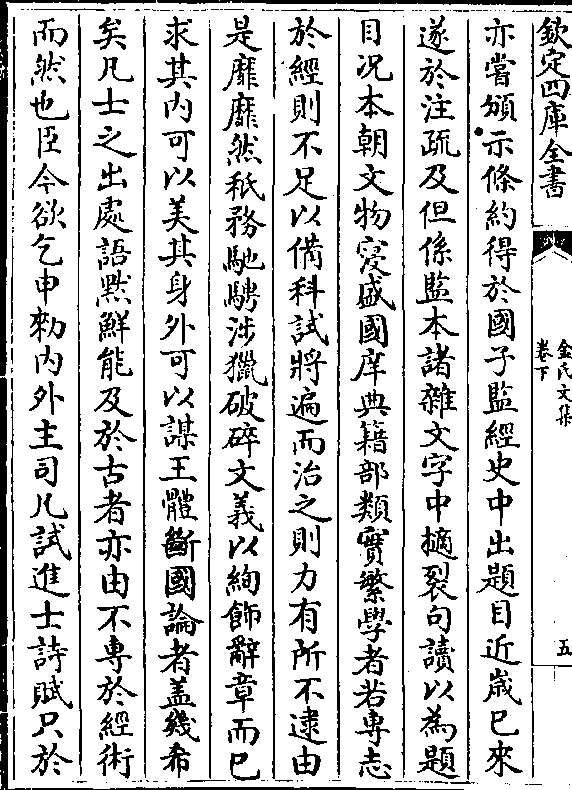 欽定四庫全書
金氏文集
卷下
五
亦嘗頒示條約得於國子監經史中出題目近歳已來
遂於注疏及但係監本諸雜文字中摘裂句讀以為題
目况本朝文物寖盛國庠典籍部類實繁學者若專志
於經則不足以備科試將遍而治之則力有所不逮由
是靡靡然秖務馳騁涉獵破碎文義以絢飾辭章而已
求其内可以美其身外可以謀王體斷國論者盖幾希
矣凡士之出處語黙鮮能及於古者亦由不專於經術
而然也臣今欲乞申勑内外主司凡試進士詩賦只於